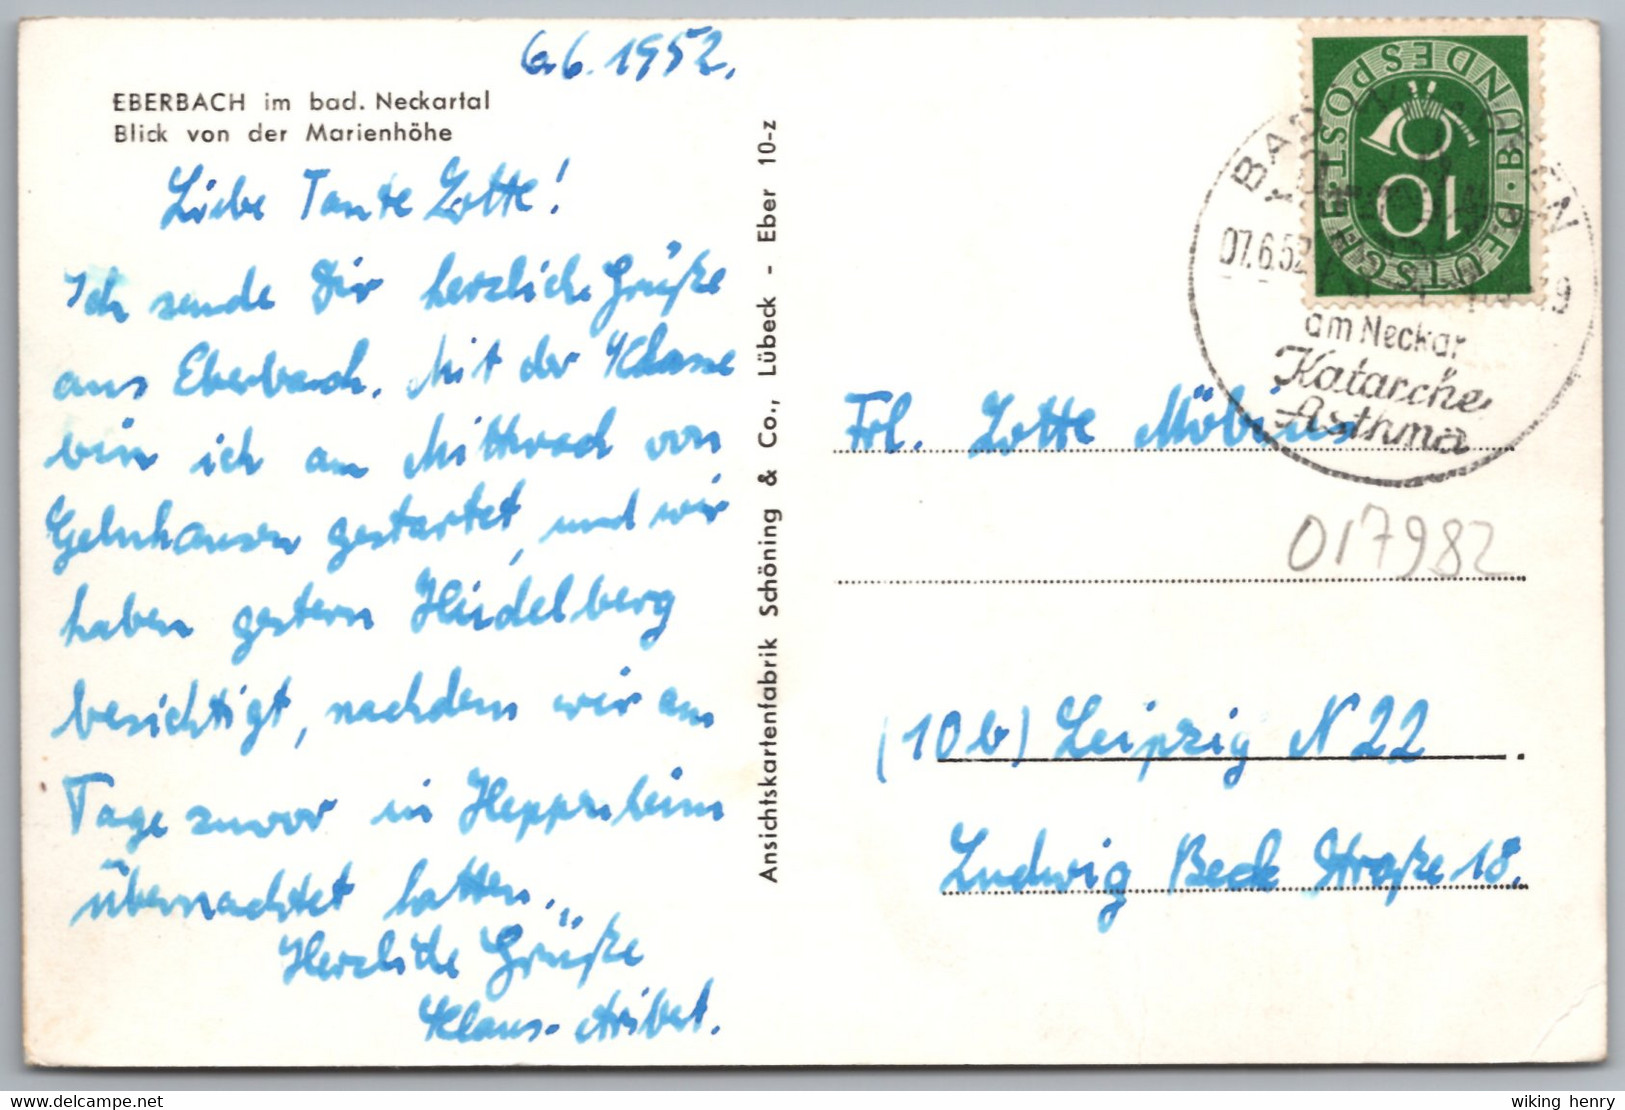 6.6.1952.
EBERBACH im bad. Neckartal
Blick von der Marienhöhe
Liebe Tante Lotte!
Ich sende Dir herzliche Grüße
aus Eberbach. Mit der Klasse
bin ich am Mittwoch von
Gelnhausen gestartet, und wir
haben gestern Heidelberg
besichtigt, nachdem wir am
Tage zuvor in Heppenheim
übernachtet hatten.
Herzliche Grüße
Klaus-
Ansichtskartenfabrik Schöning & Co., Lübeck - Eber 10-z
DEUTSCHE BUNDESPOST
10
BAD WIMPFEN
07.6.52
am Neckar
Katarrhe
Asthma
Frl. Lotte Möbius
017982
(10b) Leipzig N 22
Ludwig Beck Straße 18.
wiking henry